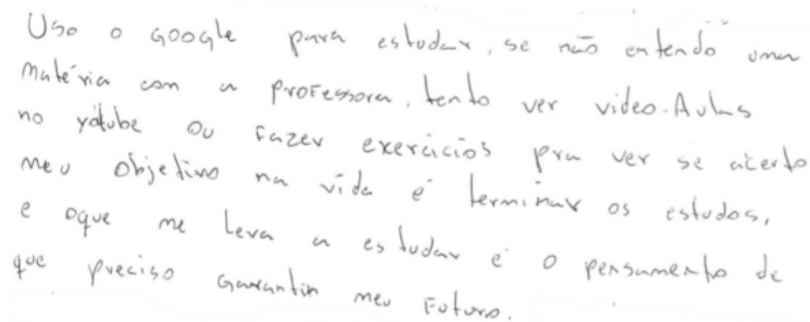 Uso o Google para estudar, se não entendo uma
matéria com a professora, tento ver video-Aulas
no yotube ou fazer exercícios pra ver se acerto
meu objetivo na vida é terminar os estudos,
e oque me leva a estudar é o pensamento de
que preciso Garantir meu Futuro.